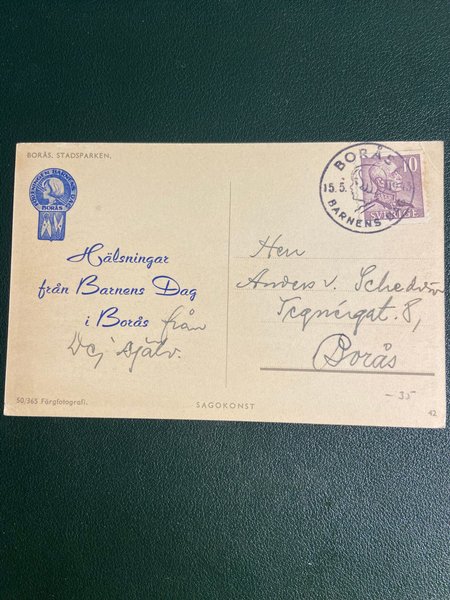 BORÅS. STADSPARKEN.
BORÅS
Hälsningar
från Barnens Dag
i Borås från
Dej själv.
50/365 Färgfotografi.
SAGOKONST
BORÅS
15.5.
BARNENS
10
SVERIGE
Herr
Anders v. Schedvin
Tegnérgat. 8,
Borås
- 35
42